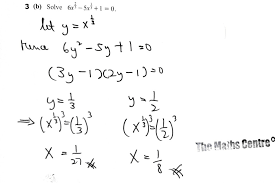 3 (b) Solve 6x^{2/3} - 5x^{1/3} + 1 = 0.
let y = x^{1/3}
Hence 6y² - 5y + 1 = 0
(3y - 1)(2y - 1) = 0
y = 1/3 y = 1/2
⇒ (x^{1/3})³ = (1/3)³ (x^{1/3})³ = (1/2)³
The Maths Centre
x = 1/27 x = 1/8